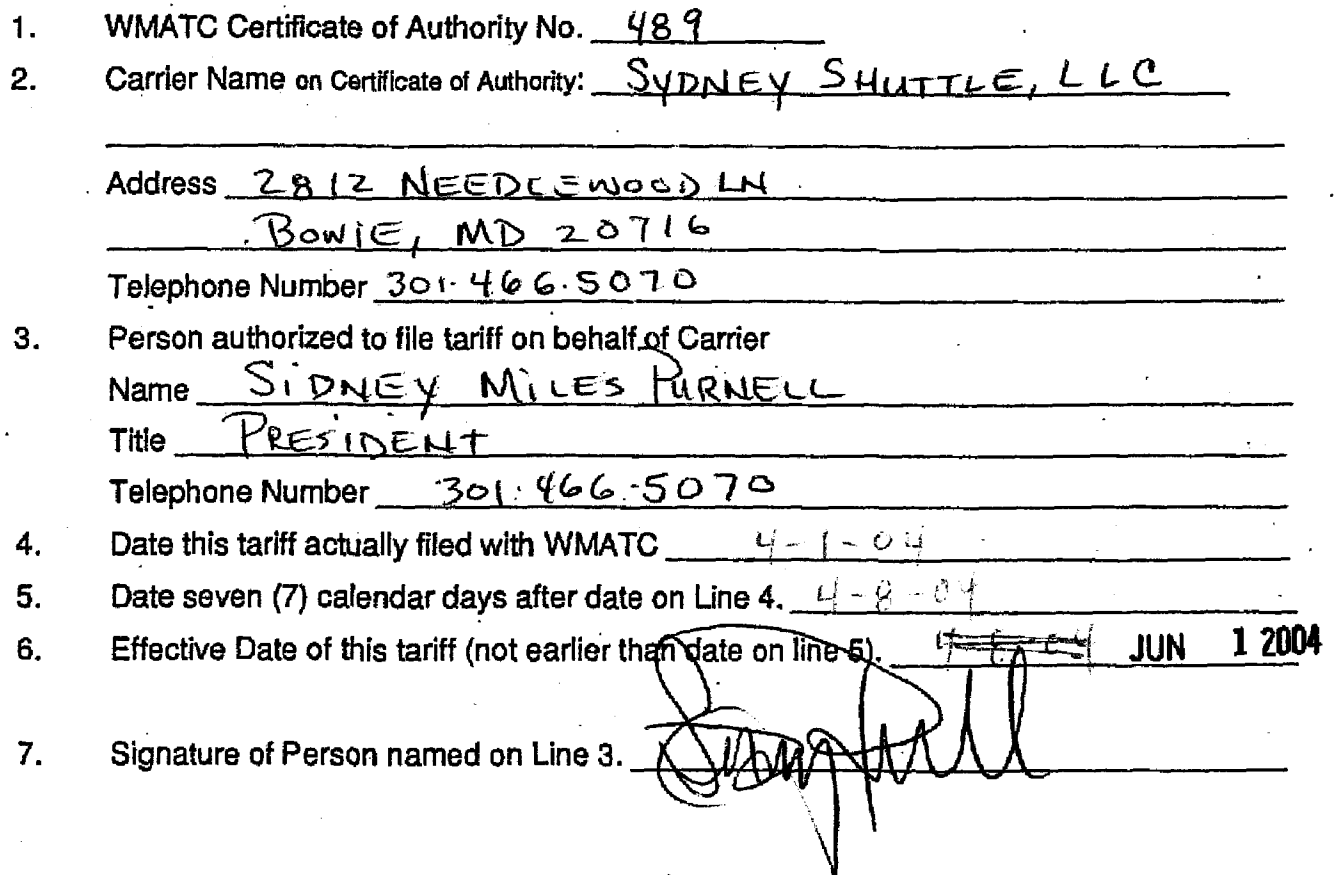 1. WMATC Certificate of Authority No. 489
2. Carrier Name on Certificate of Authority: SYDNEY SHUTTLE, LLC
Address 2812 NEEDLEWOOD LN
BOWIE, MD 20716
Telephone Number 301.466.5070
3. Person authorized to file tariff on behalf of Carrier
Name SIDNEY MILES PURNELL
Title PRESIDENT
Telephone Number 301.466.5070
4. Date this tariff actually filed with WMATC 4-1-04
5. Date seven (7) calendar days after date on Line 4. 4-8-04
6. Effective Date of this tariff (not earlier than date on line 5). JUN 1 2004
7. Signature of Person named on Line 3.